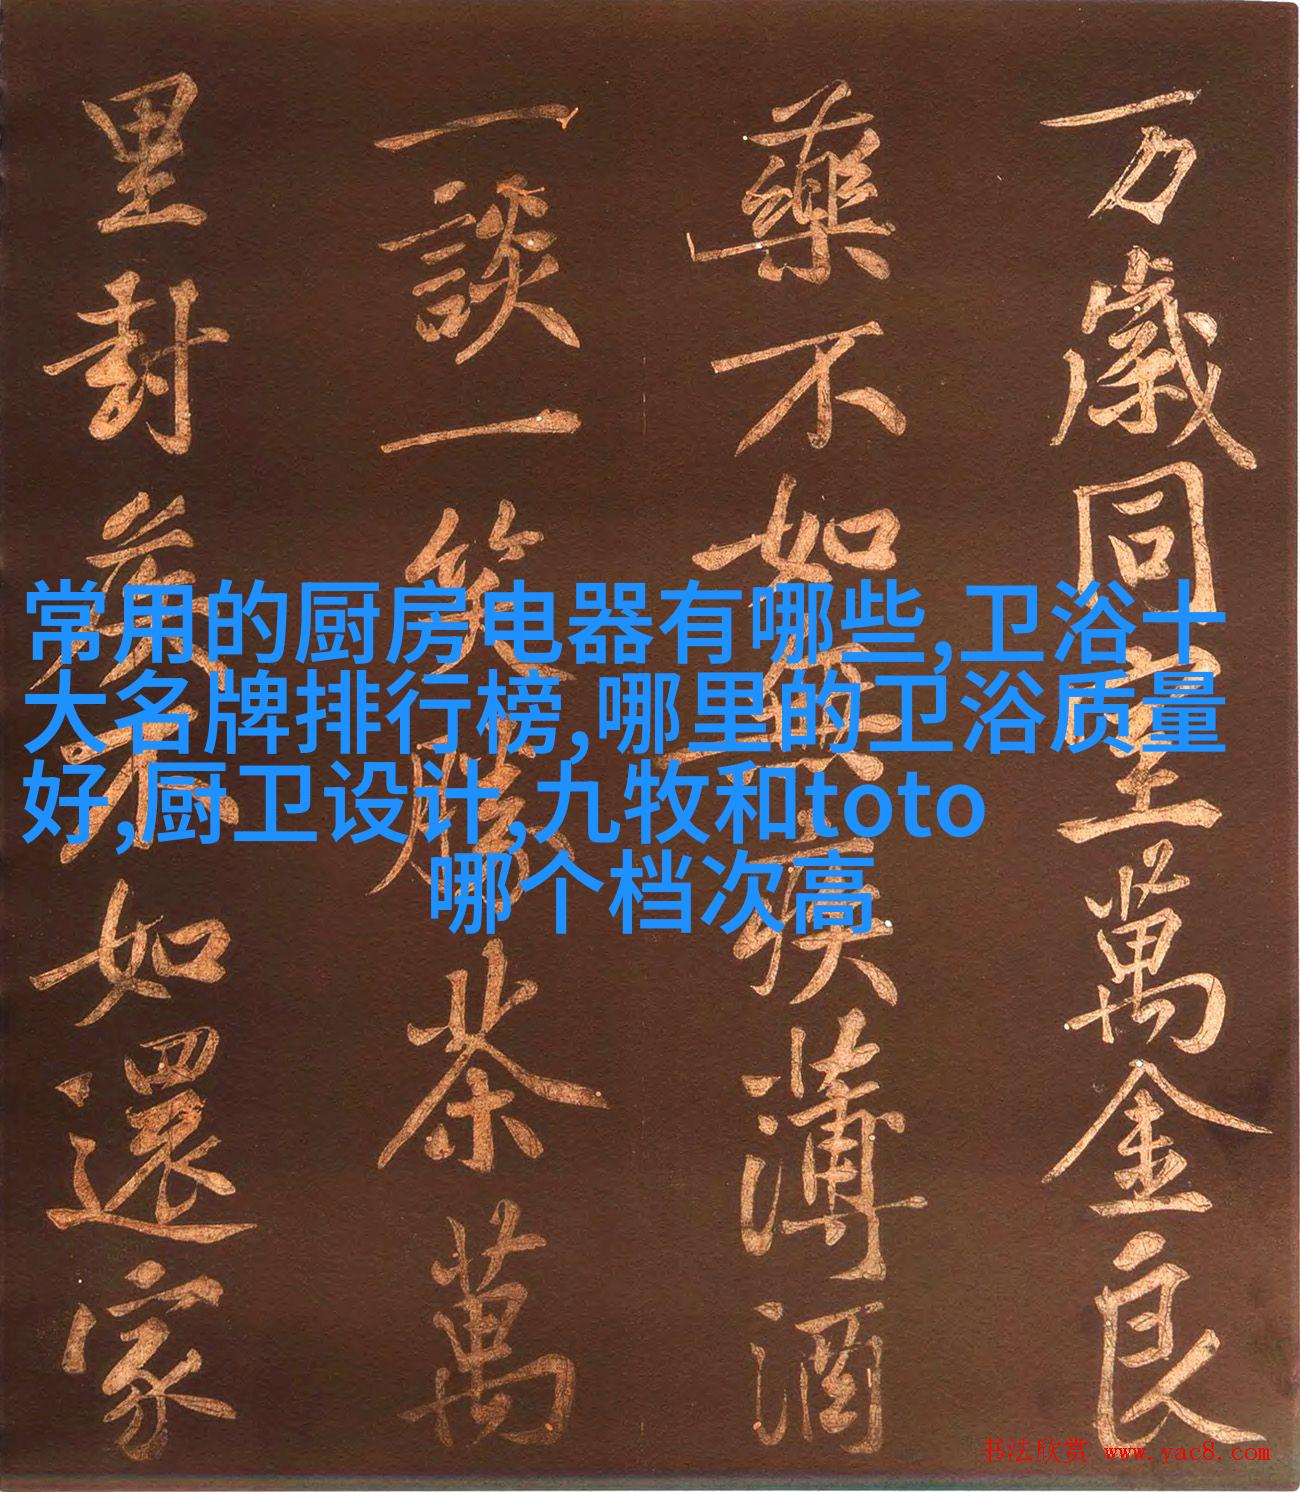 万歲同堂萬金良
藥不如無疾薄酒
一談一笑勝茶萬
里封侯不如還家
常用的厨房电器有哪些,卫浴十
大名牌排行榜,哪里的卫浴质量
好,厨卫设计,九牧和toto
哪个档次高
书法欣赏 www.yac8.com